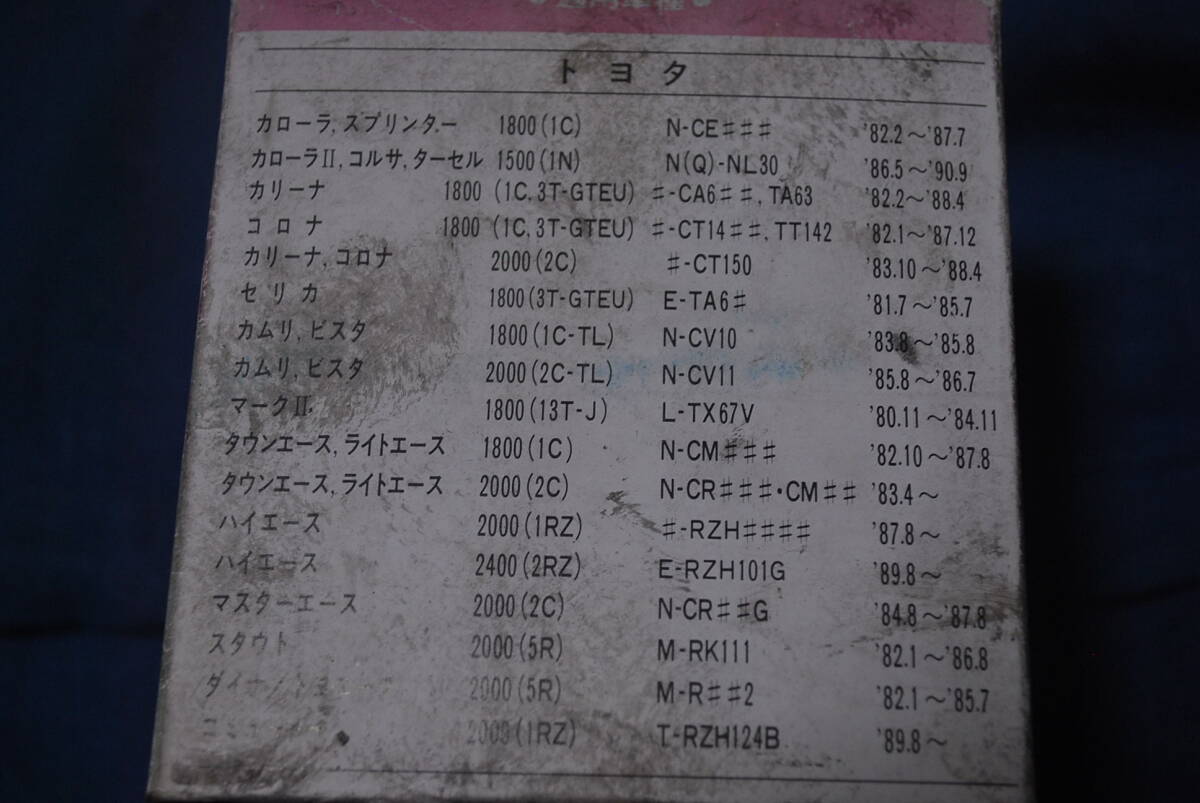 適用車種
トヨタ
カローラ, スプリンター 1800(1C) N-CE♯♯♯ '82.2〜'87.7
カローラII, コルサ, ターセル 1500(1N) N(Q)-NL30 '86.5〜'90.9
カリーナ 1800 (1C, 3T-GTEU) ♯-CA6♯♯, TA63 '82.2〜'88.4
コロナ 1800 (1C, 3T-GTEU) ♯-CT14♯♯, TT142 '82.1〜'87.12
カリーナ, コロナ 2000(2C) ♯-CT150 '83.10〜'88.4
セリカ 1800(3T-GTEU) E-TA6♯ '81.7〜'85.7
カムリ, ビスタ 1800(1C-TL) N-CV10 '83.8〜'85.8
カムリ, ビスタ 2000(2C-TL) N-CV11 '85.8〜'86.7
マークII 1800(13T-J) L-TX67V '80.11〜'84.11
タウンエース, ライトエース 1800(1C) N-CM♯♯♯ '82.10〜'87.8
タウンエース, ライトエース 2000(2C) N-CR♯♯♯・CM♯♯ '83.4〜
ハイエース 2000(1RZ) ♯-RZH♯♯♯♯ '87.8〜
ハイエース 2400(2RZ) E-RZH101G '89.8〜
マスターエース 2000(2C) N-CR♯♯G '84.8〜'87.8
スタウト 2000(5R) M-RK111 '82.1〜'86.8
2000(5R) M-R♯♯2 '82.1〜'85.7
2000(1RZ) T-RZH124B '89.8〜